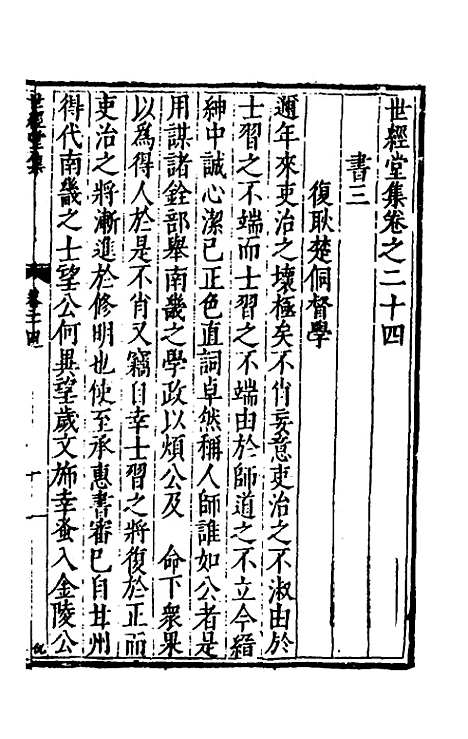 世經堂集卷之二十四
書三
復耿楚侗督學
邇年來吏治之壞極矣不肖妄意吏治之不淑由於
士習之不端而士習之不端由於師道之不立今縉
紳中誠心潔已正色直詞卓然稱人師誰如公者是
用謀諸銓部舉南畿之學政以煩公及 命下衆果
以為得人於是不肖又竊自幸士習之將復於正而
吏治之將漸進於修明也使至承惠書審已自甘州
得代南畿之士望公何異望歲文斾幸蚤入金陵公
世經堂集
卷二十四
一